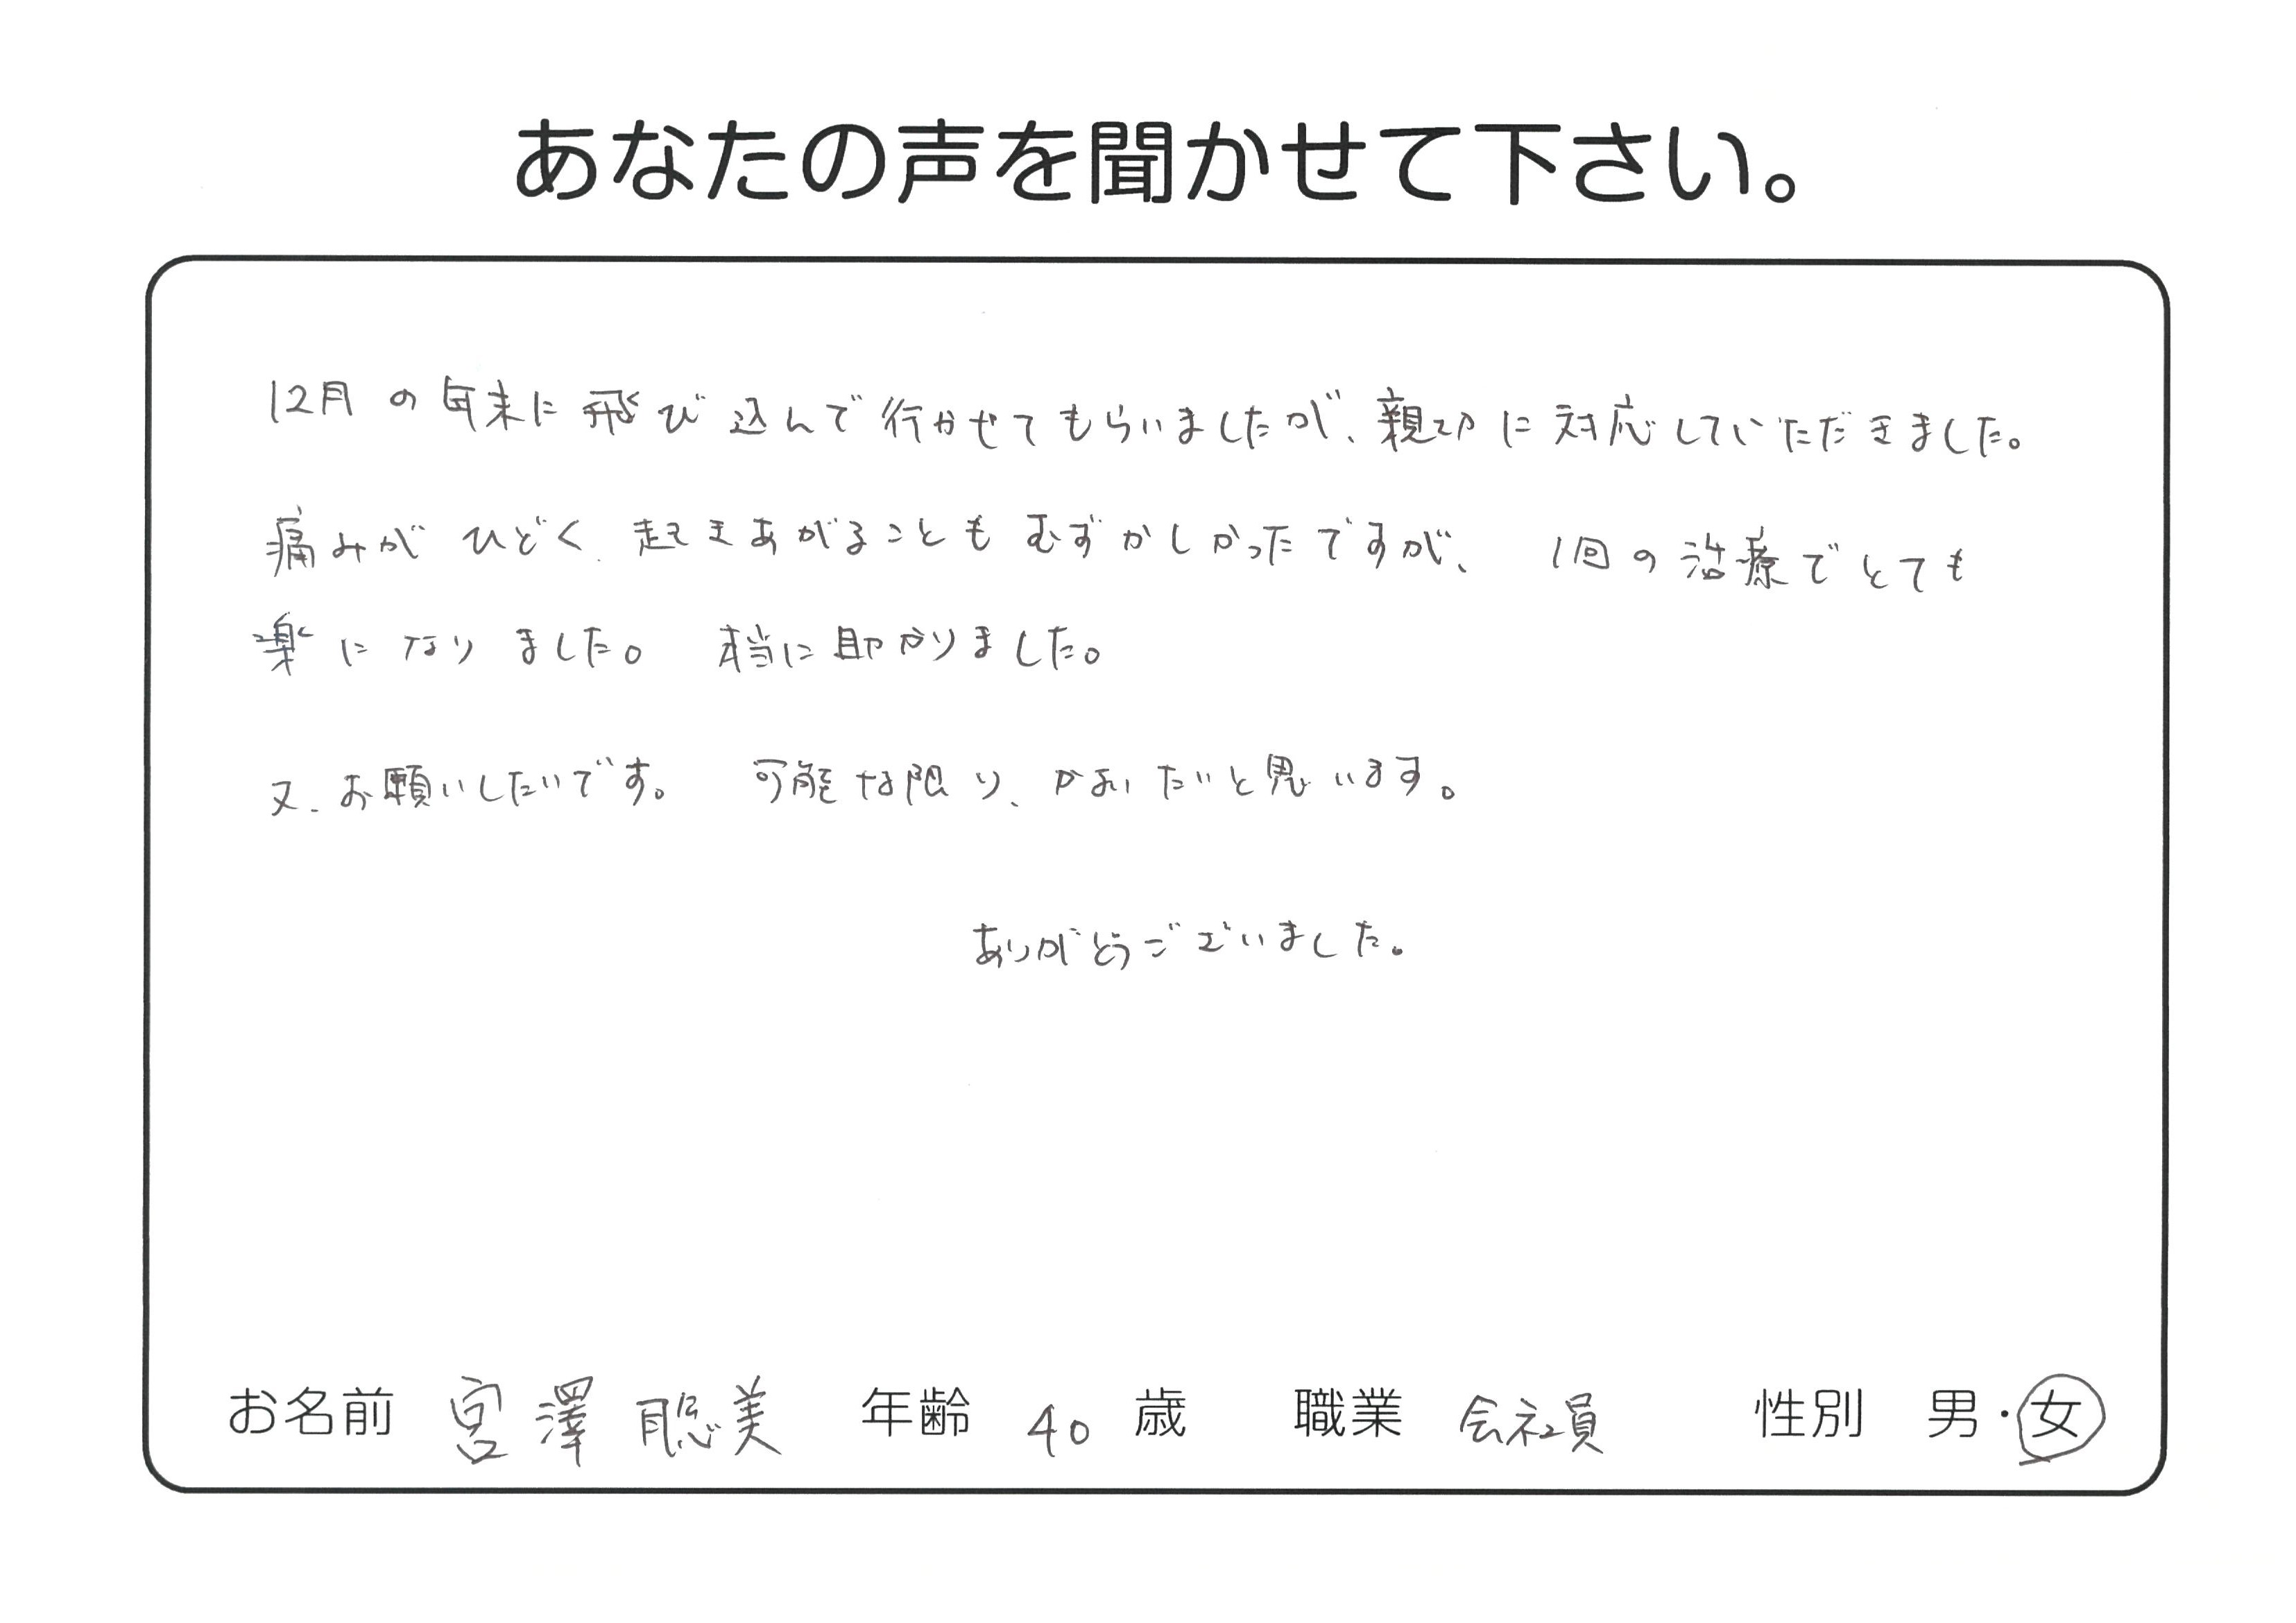 あなたの声を聞かせて下さい。
12月の年末に飛び込んで行かせてもらいましたが、親切に対応していただきました。
痛みがひどく、起きあがることもむずかしかったですが、 1回の治療でとても
楽になりました。 本当に助かりました。
又、お願いしたいです。 可能な限り、かよいたいと思います。
ありがとうございました。
お名前 宮澤 聡美 年齢 40 歳 職業 会社員 性別 男・女